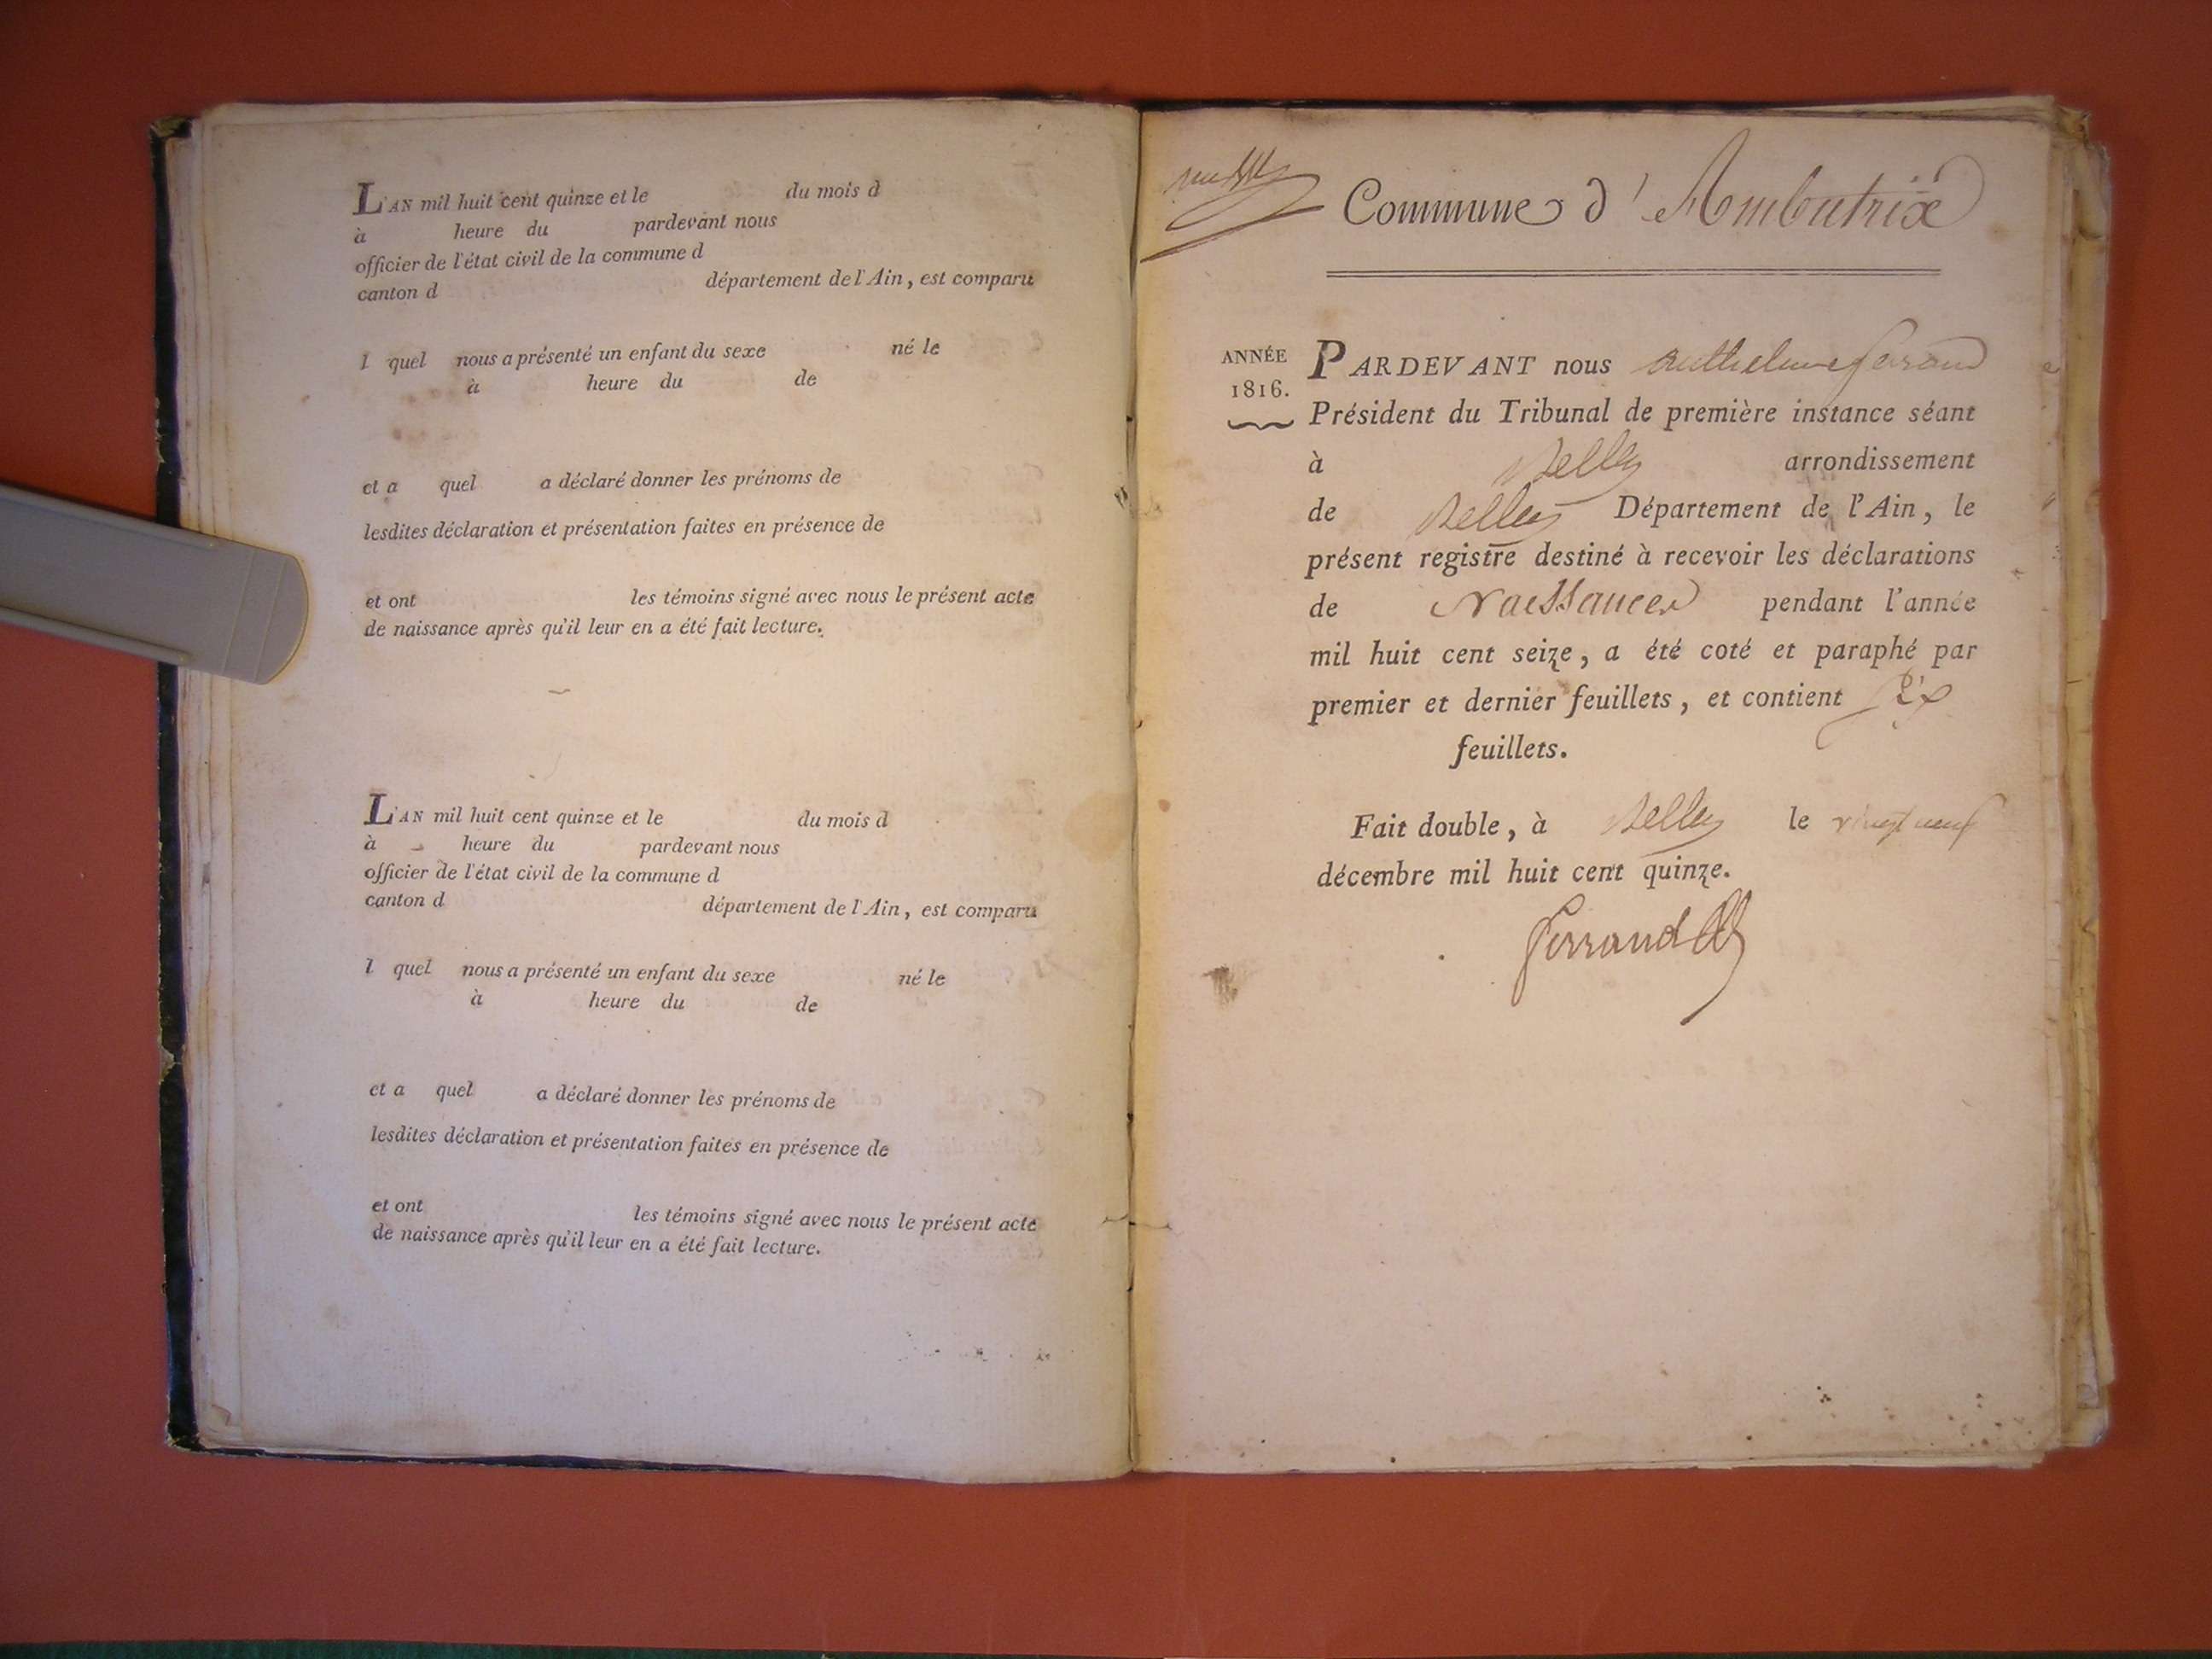 L'AN mil huit cent quinze et le du mois d
à heure du pardevant nous
officier de l'état civil de la commune d
canton d département de l'Ain, est comparu
l quel nous a présenté un enfant du sexe né le
à heure du de
et a quel a déclaré donner les prénoms de
lesdites déclaration et présentation faites en présence de
et ont les témoins signé avec nous le présent acte
de naissance après qu'il leur en a été fait lecture.
L'AN mil huit cent quinze et le du mois d
à heure du pardevant nous
officier de l'état civil de la commune d
canton d département de l'Ain, est comparu
l quel nous a présenté un enfant du sexe né le
à heure du de
et a quel a déclaré donner les prénoms de
lesdites déclaration et présentation faites en présence de
et ont les témoins signé avec nous le présent acte
de naissance après qu'il leur en a été fait lecture.
Commune d'Ambutrix
ANNÉE
1816.
PARDEVANT nous Anthelme Ferrand
Président du Tribunal de première instance séant
à Belley arrondissement
de Belley Département de l'Ain, le
présent registre destiné à recevoir les déclarations
de Naissances pendant l'année
mil huit cent seize, a été coté et paraphé par
premier et dernier feuillets, et contient Six
feuillets.
Fait double, à Belley le vingt neuf
décembre mil huit cent quinze.
Ferrand